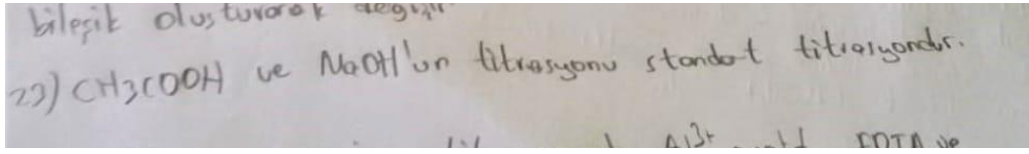 bileşik oluşturarak değişir.
23) CH3COOH ve NaOH'ın titrasyonu standat titrasyondur.
Al3+ EDTA ve